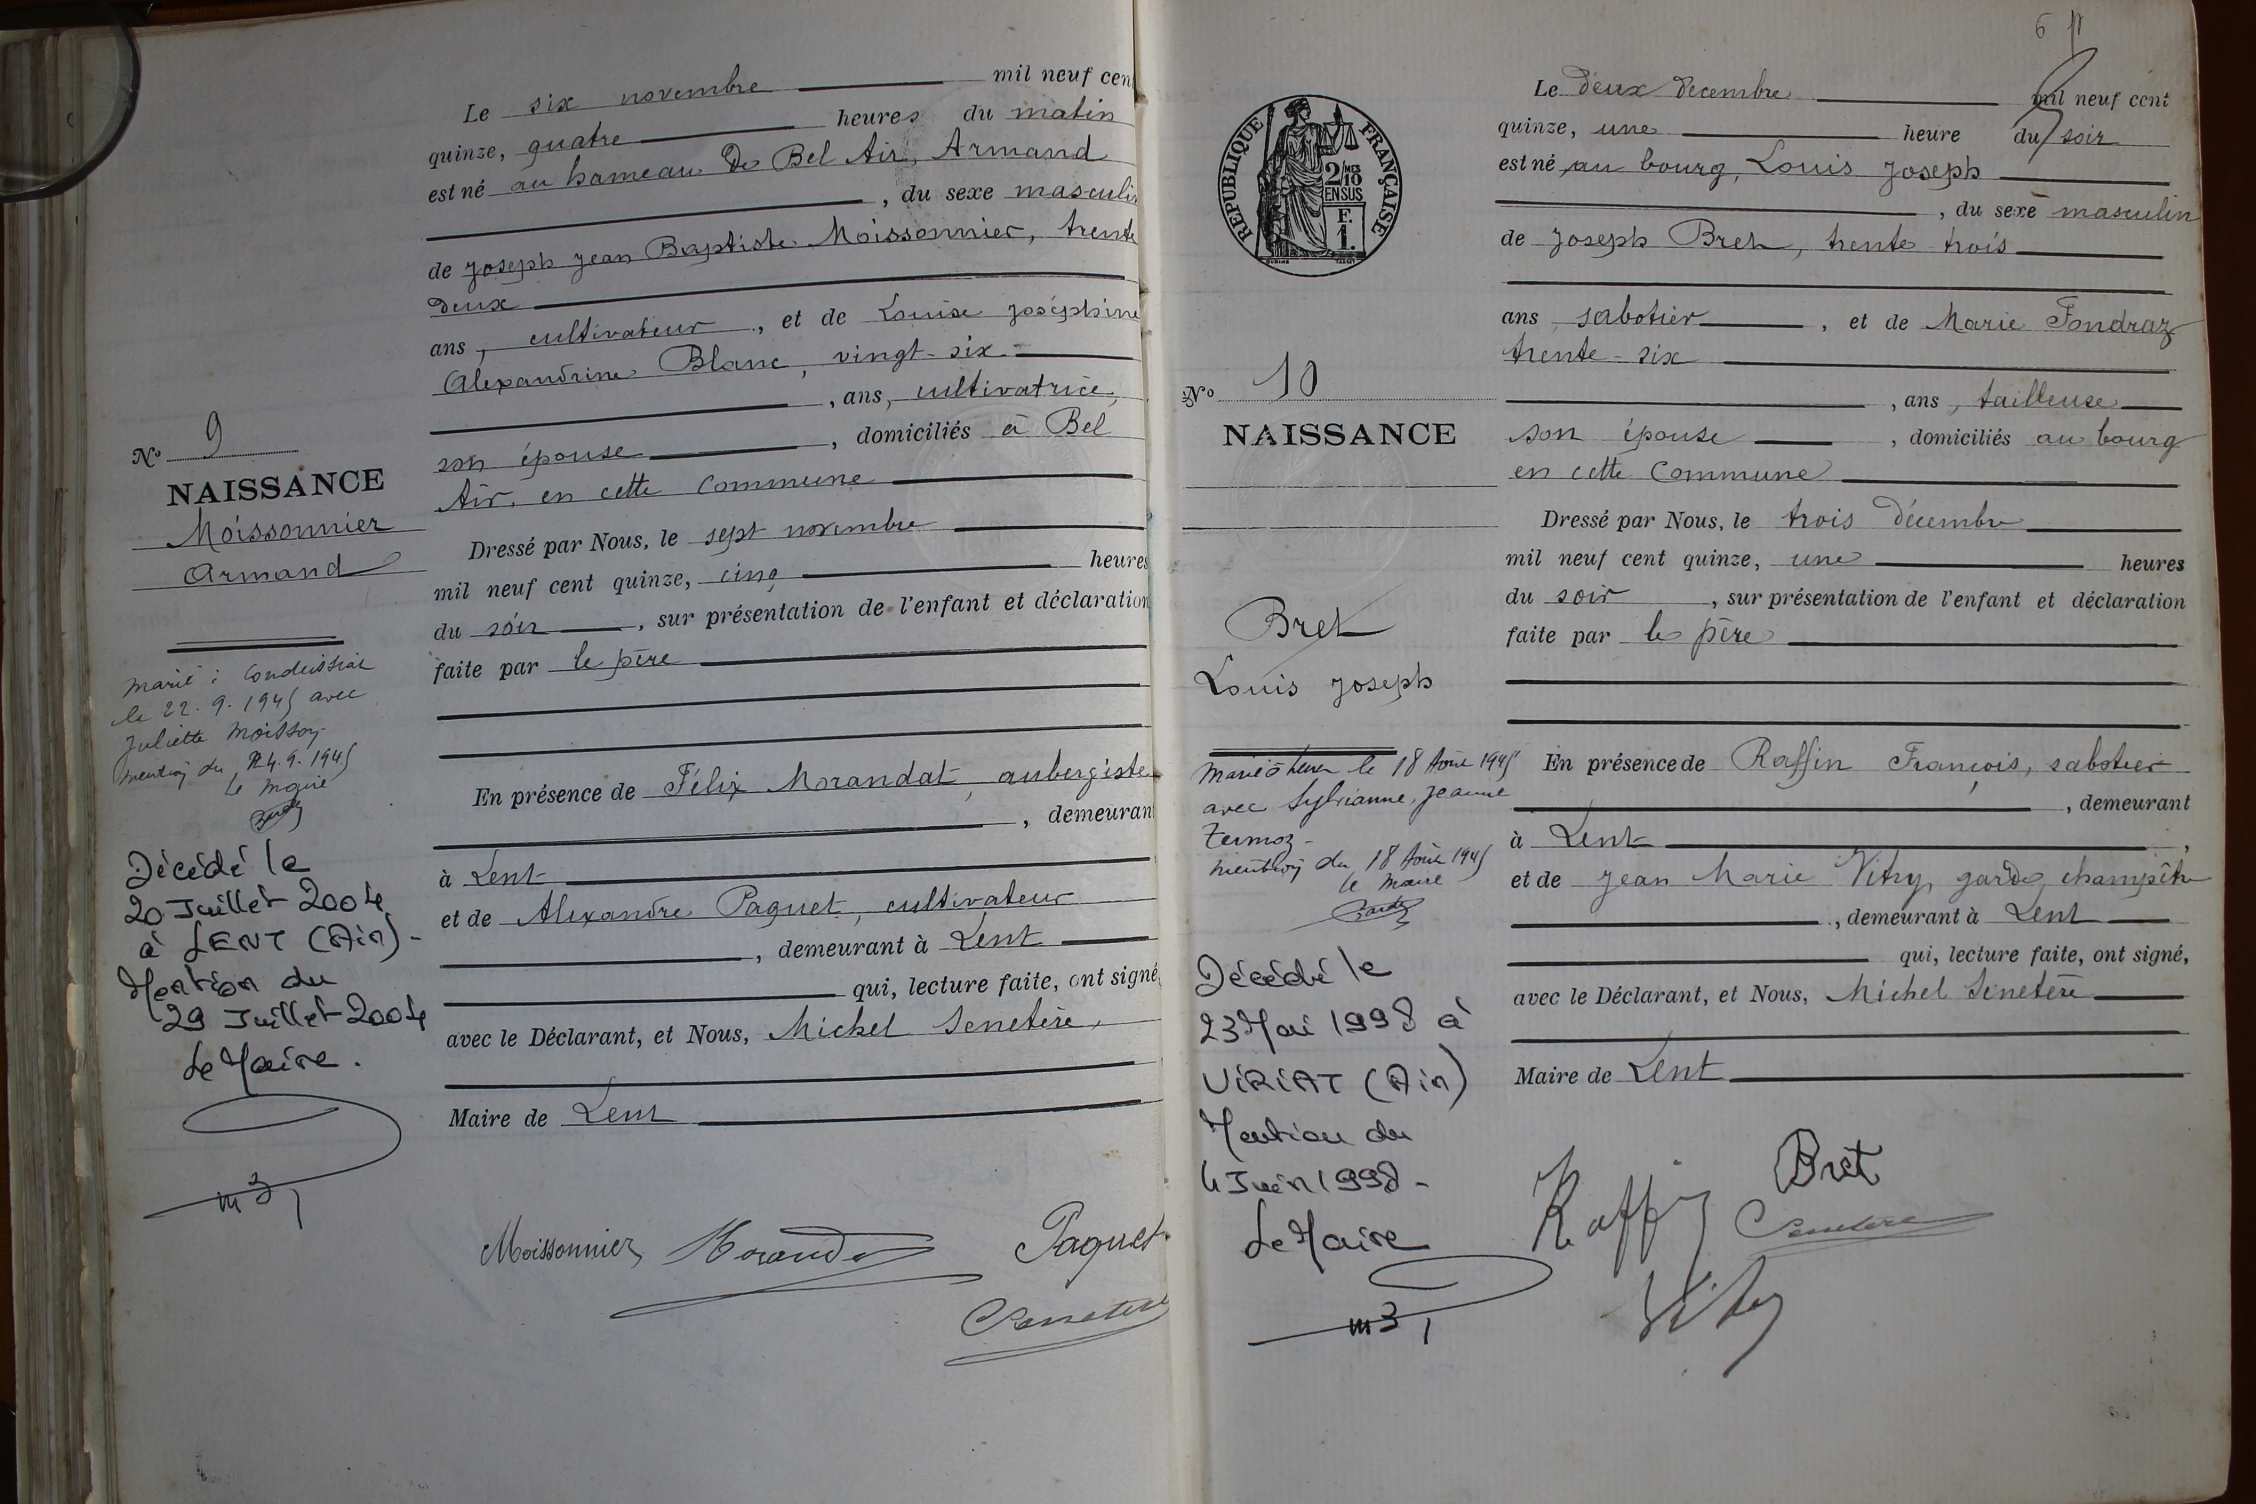 Le six novembre mil neuf cent
quinze, quatre heures du matin
est né au hameau de Bel Air, Armand
, du sexe masculin
de Joseph Jean Baptiste Moissonnier, trente
deux
ans, cultivateur, et de Louise Joséphine
Alexandrine Blanc, vingt-six
, ans, cultivatrice,
son épouse, domiciliés à Bel
Air, en cette commune
Dressé par Nous, le sept novembre
mil neuf cent quinze, cinq heures
du soir, sur présentation de l'enfant et déclaration
faite par le père
En présence de Félix Morandat, aubergiste
, demeurant
à Lent
et de Alexandre Paquet, cultivateur
, demeurant à Lent
qui, lecture faite, ont signé,
avec le Déclarant, et Nous, Michel Senetère,
Maire de Lent
Moissonnier Morandat Paquet
Senetère
No 9
NAISSANCE
Moissonnier
Armand
Marié à Condeissiat
le 22.9.1945 avec
Juliette Moisson
mention du 24.9.1945
le maire
Décédé le
20 Juillet 2004
à LENT (Ain)-
Mention du
29 Juillet 2004
Le Maire.
6
Le deux décembre mil neuf cent
quinze, une heure du soir
est né au bourg, Louis Joseph
, du sexe masculin
de Joseph Bret, trente trois
ans, sabotier, et de Marie Fondraz
trente-six
, ans, tailleuse
son épouse, domiciliés au bourg
en cette commune
Dressé par Nous, le trois décembre
mil neuf cent quinze, une heures
du soir, sur présentation de l'enfant et déclaration
faite par le père
En présence de Raffin François, sabotier
, demeurant
à Lent,
et de Jean Marie Vitry, garde champêtre
, demeurant à Lent
qui, lecture faite, ont signé,
avec le Déclarant, et Nous, Michel Senetère
Maire de Lent
Raffin Bret
Senetère
Vitry
REPUBLIQUE FRANÇAISE
2/10 MES
EN SUS
F.
1.
No 10
NAISSANCE
Bret
Louis Joseph
Marié à le 18 Août 1945
avec Sylvianne, Jeanne
Termoz-
mention du 18 Août 1945
le Maire
Décédé le
23 Mai 1998 à
VIRIAT (Ain)
Mention du
4 Juin 1998-
Le Maire